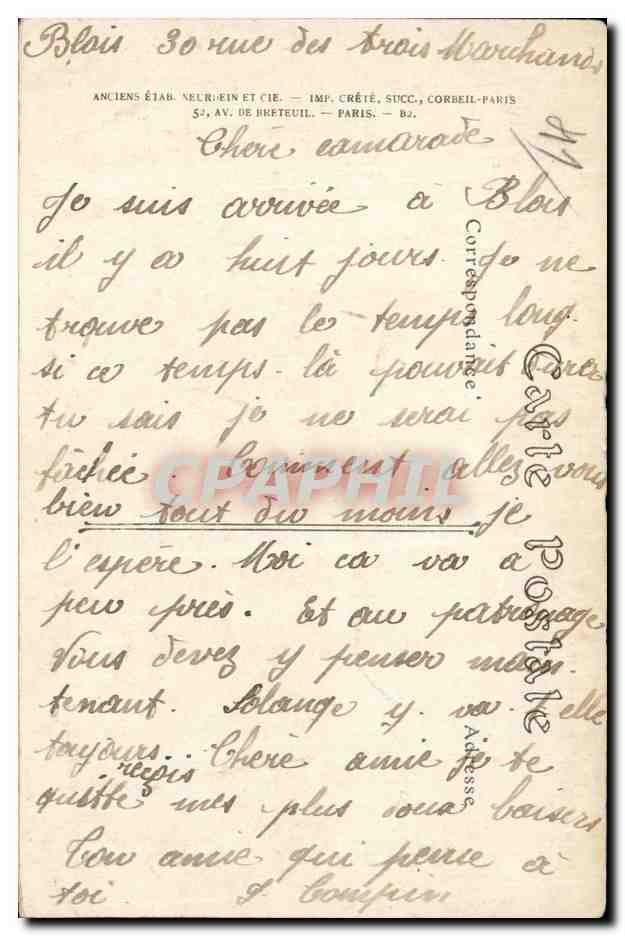 Blois 30 rue des trois Marchands
ANCIENS ÉTAB. NEURDEIN ET CIE. — IMP. CRÉTÉ, SUCC., CORBEIL-PARIS
52, AV. DE BRETEUIL. — PARIS. — B2.
41
Chère camarade
Je suis arrivée à Blois
il y a huit jours. Je ne
trouve pas le temps long.
si ce temps-là pouvait durer
tu sais je ne serai pas
fâchée. Comment allez vous
bien tout du moins je
l'espère. Moi ca va a
peu près. Et au patronage
Vous devez y penser main
tenant. Solange y va-t-elle
toujours. Chère amie je te
quitte reçois mes plus doux baisers
Ton amie qui pense à
toi S Compin
Correspondance
Carte Postale
Adresse
CPAPHIL